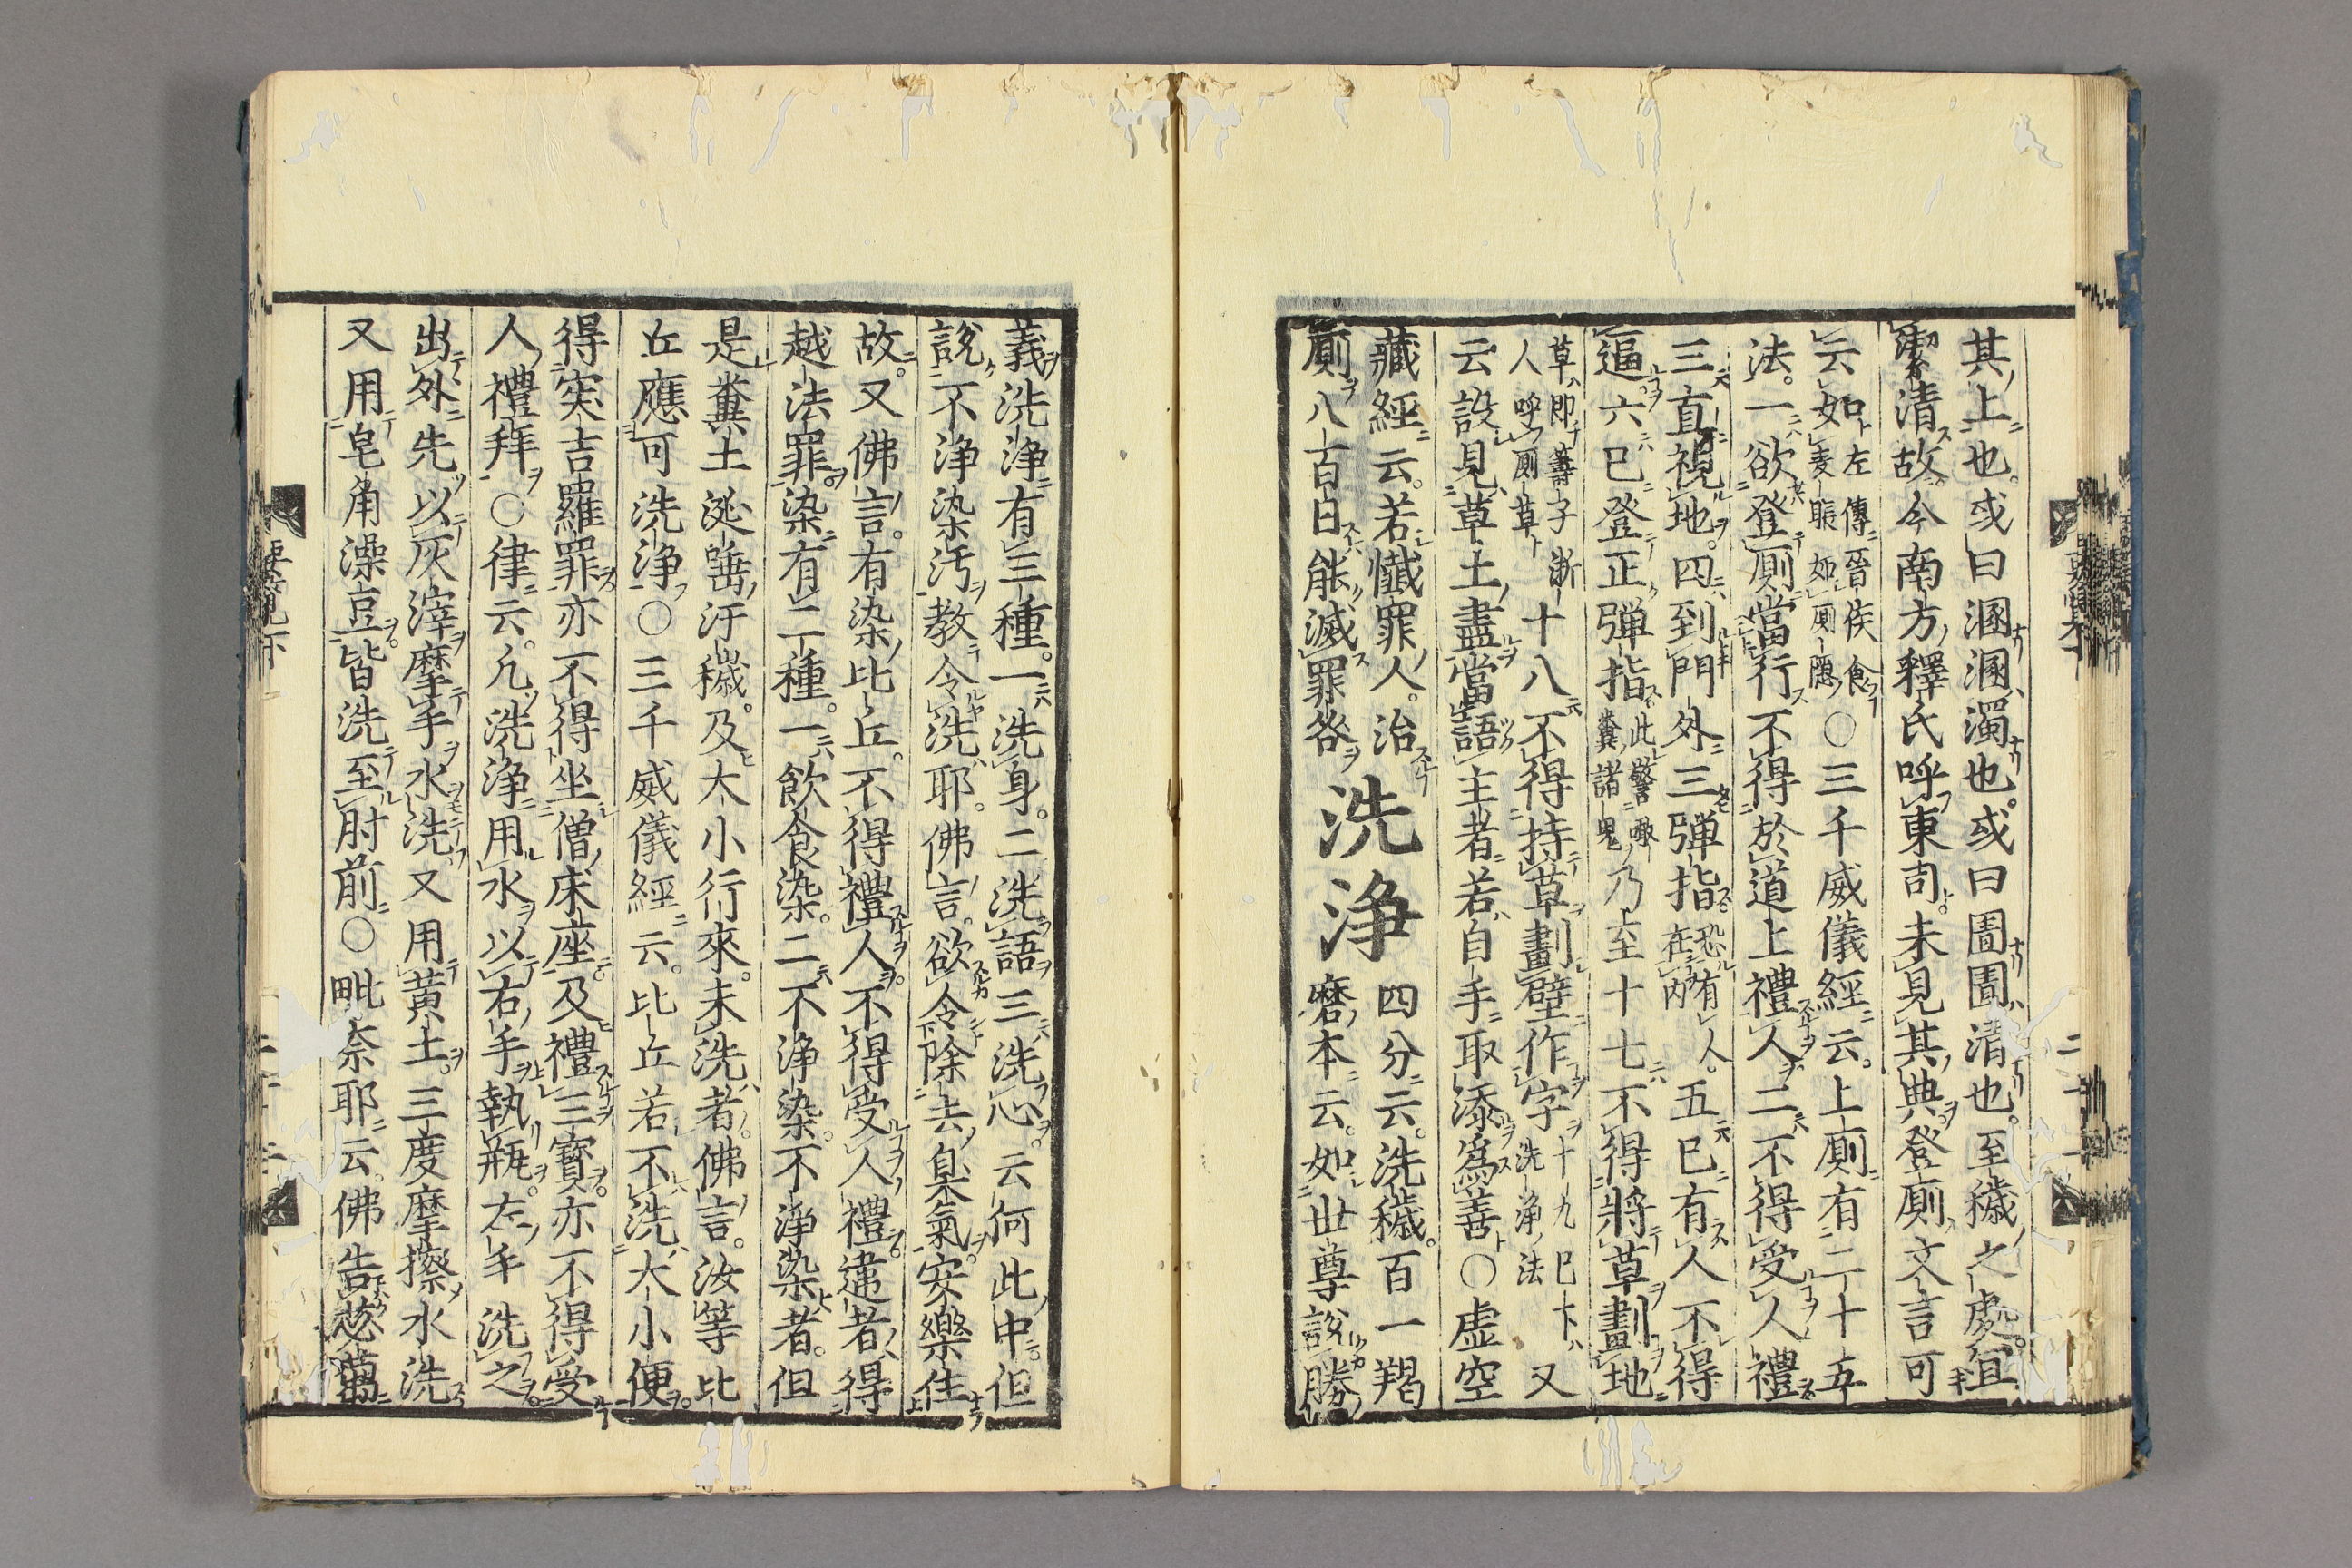 其上也。或曰溷溷濁也。或曰圊圊清也。至穢之處。宜
潔清故。今南方釋氏呼東司。未見其典登厠文言可
云如左傳晉侯食
麦脹如厠隠〇三千威儀經云。上厠有二十五
法。一欲登厠當行不得於道上禮人二不得受人禮
三直視地。四到門外三弾指恐有人
在内。五已有人不得
逼。六已登正弾指此警噉
糞諸鬼乃至十七不得將草劃地
草即籌子浙
人呼厠草十八不得持草劃壁作字十九已下又
洗浄法
云設見草土盡當語主者若自手取添爲善〇虚空
藏經云。若懺罪人。治
厠八百日能滅罪咎
洗浄
四分云。洗穢。百一羯
磨本云。如世尊説勝
義洗浄有三種。一洗身。二洗語三洗心。云何此中但
説不浄染汚教令洗耶。佛言。欲令除去臭氣。安樂住
故。又佛言。有染比丘。不得禮人。不得受人禮違者得
越法罪。染有二種。一飲食染。二不浄染。不浄染者。但
是糞土涎唾汙穢。及大小行來。未洗者。佛言。汝等比
丘應可洗浄〇三千威儀經云。比丘若不洗大小便。
得突吉羅罪亦不得坐僧床座。及禮三寳。亦不得受
人禮拜〇律云。凢洗浄用水以右手執瓶。左手洗之。
出外先以灰滓摩手水洗又用黄土。三度摩擦水洗
又用皂角澡豆。皆洗至肘前〇毗奈耶云。佛告苾蒭